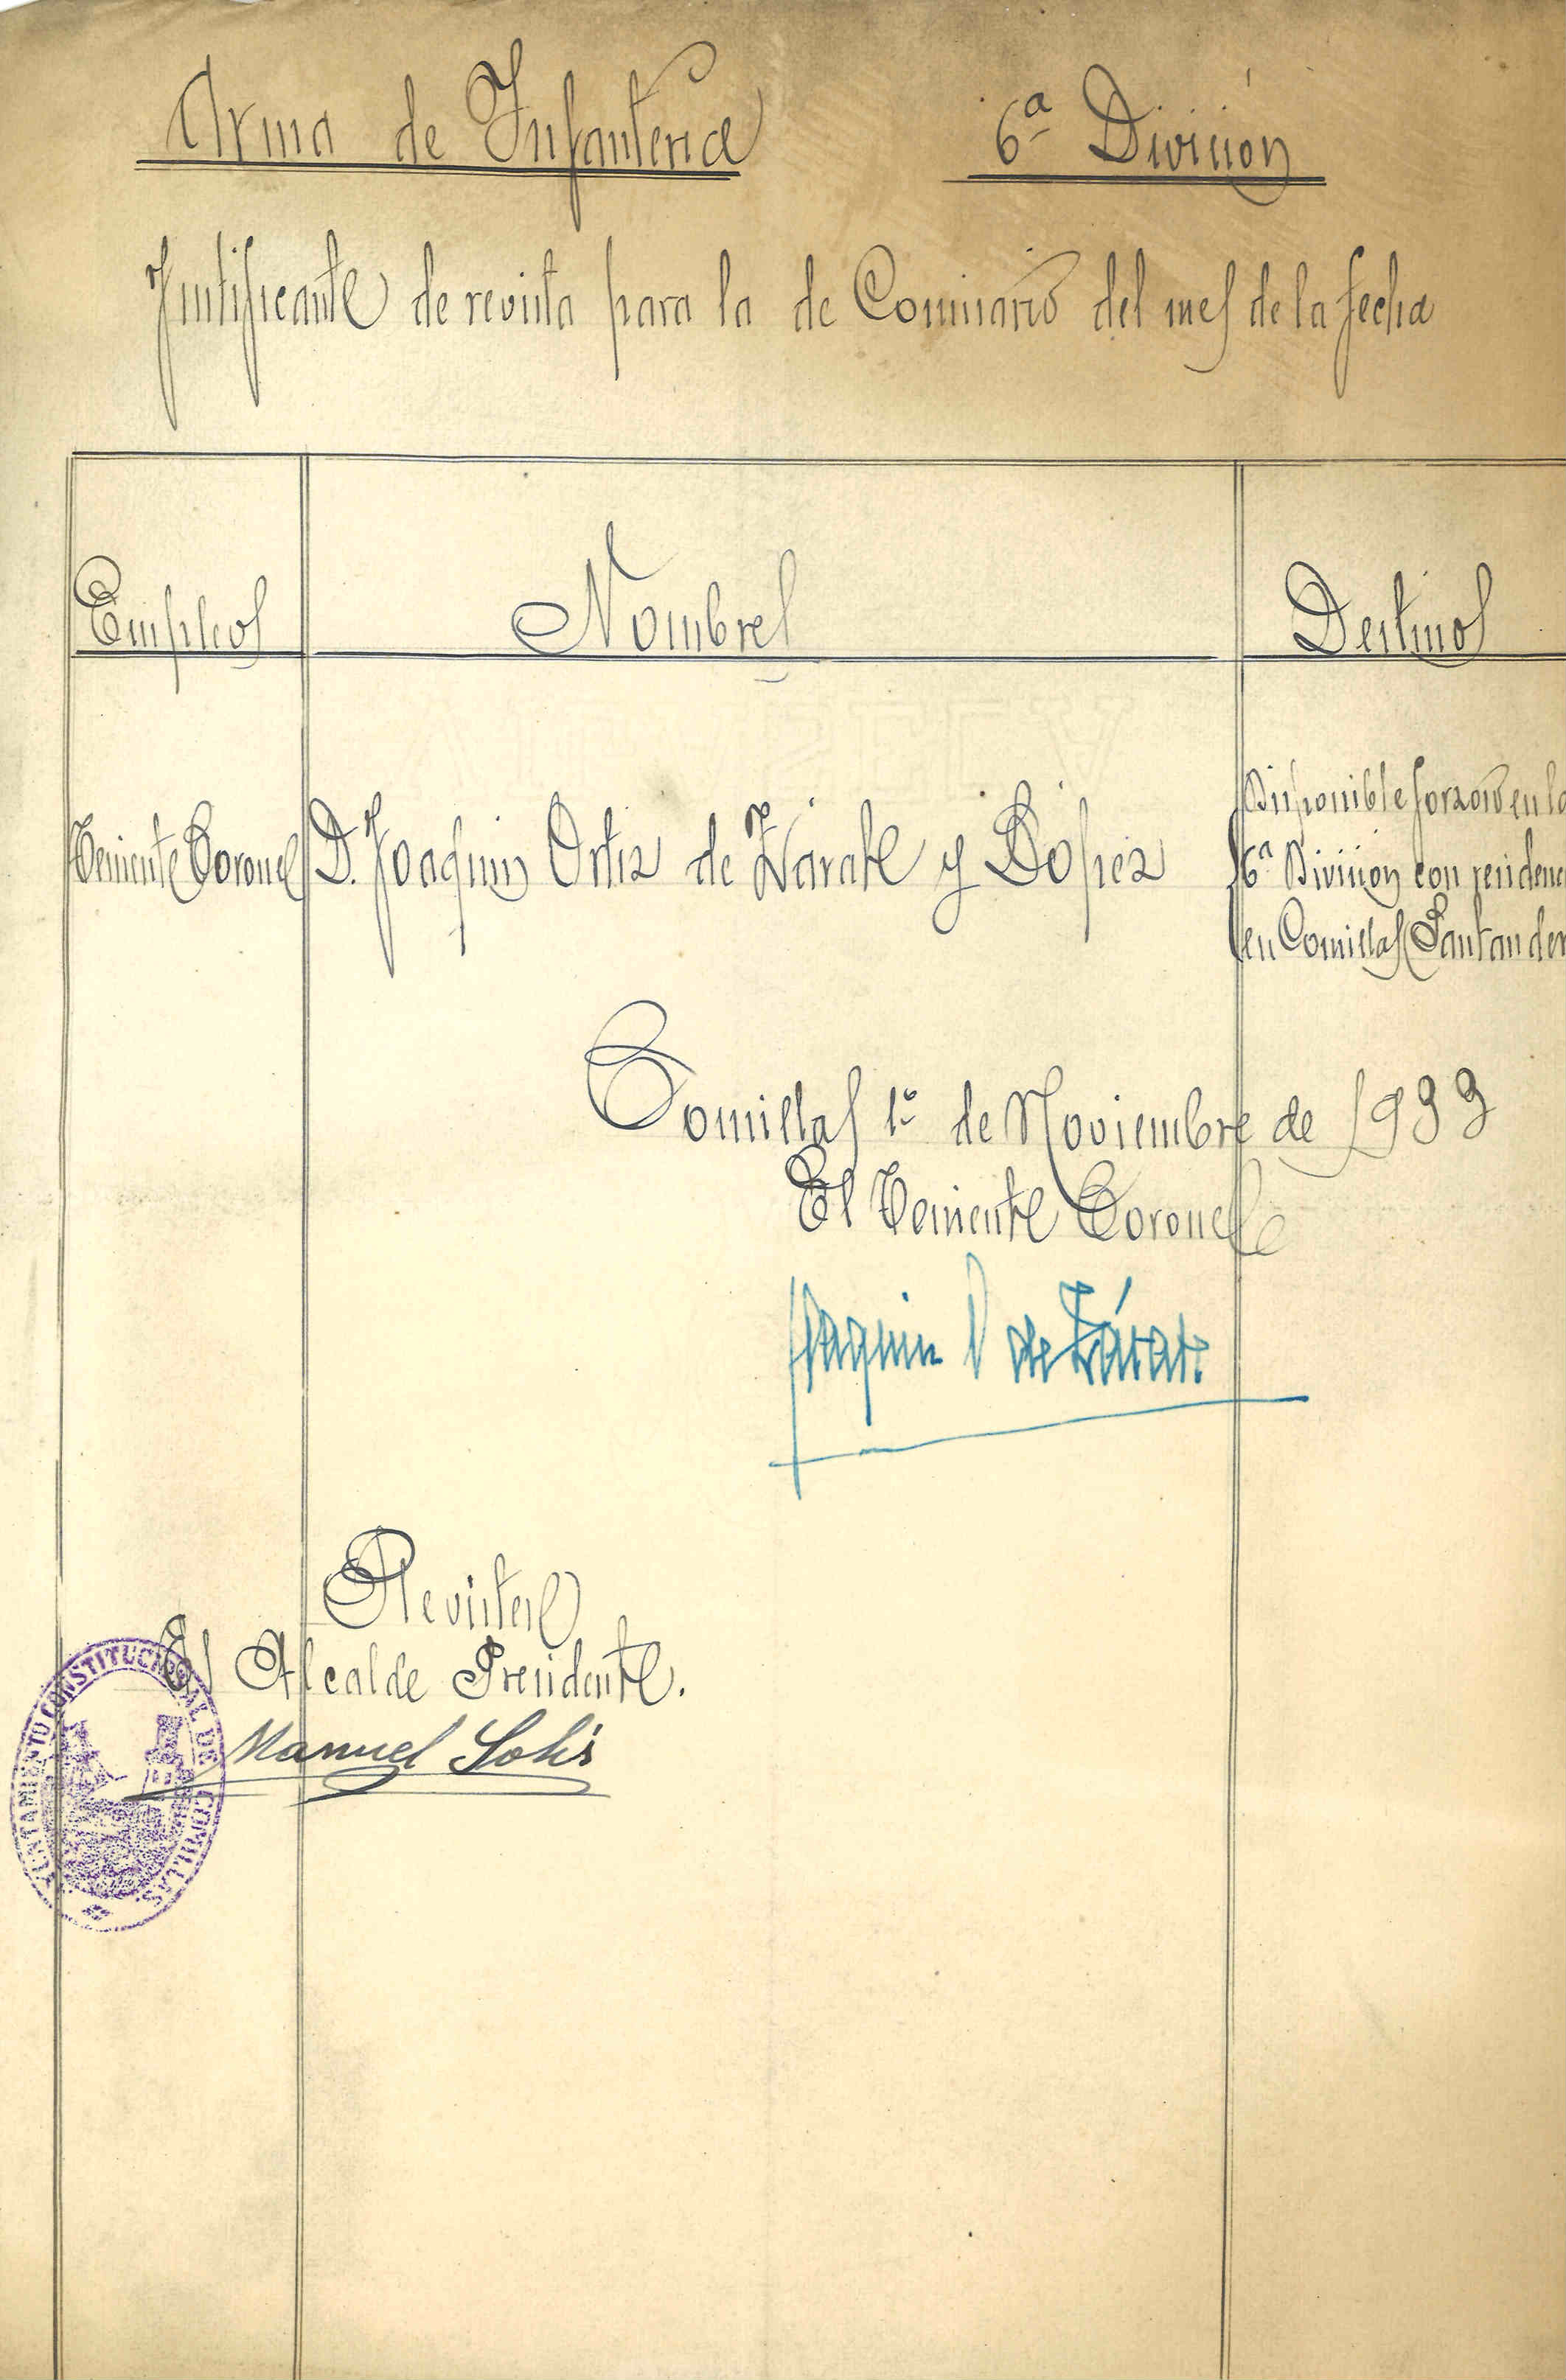 Arma de Infanteria 6ª División
Justificante de revista para la de Comisario del mes de la fecha
Empleos Nombres Destinos
Teniente Coronel D. Joaquin Ortiz de Zárate y López
Disponible forzoso en la
6ª División con residenc
en Comillas (Santander
Comillas 1º de Noviembre de 1933
El Teniente Coronel
Joaquin O de Zárate
Revisté
El Alcalde Presidente.
Manuel Solís
AYUNTAMIENTO CONSTITUCIONAL DE COMILLAS